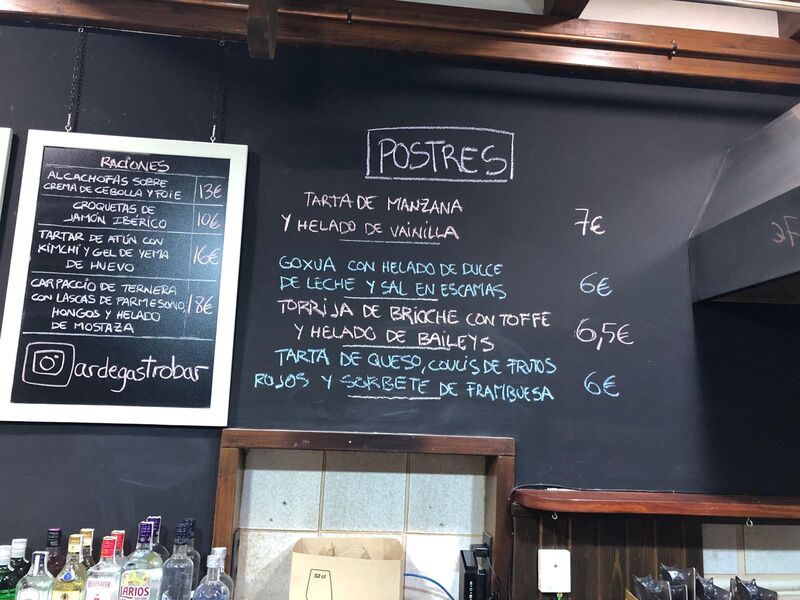 RACIONES
ALCACHOFAS SOBRE
CREMA DE CEBOLLA Y FOIE 13€
CROQUETAS DE
JAMÓN IBÉRICO 10€
TARTAR DE ATÚN CON
KIMCHI Y GEL DE YEMA 16€
DE HUEVO
CARPACCIO DE TERNERA
CON LASCAS DE PARMESANO, 18€
HONGOS Y HELADO
DE MOSTAZA
ardegastrobar
POSTRES
TARTA DE MANZANA
Y HELADO DE VAINILLA 7€
GOXUA CON HELADO DE DULCE
DE LECHE Y SAL EN ESCAMAS 6€
TORRIJA DE BRIOCHE CON TOFFE
Y HELADO DE BAILEYS 6,5€
TARTA DE QUESO, COULIS DE FRUTOS
ROJOS Y SORBETE DE FRAMBUESA 6€
BEEFEATER
LARIOS
52 cl